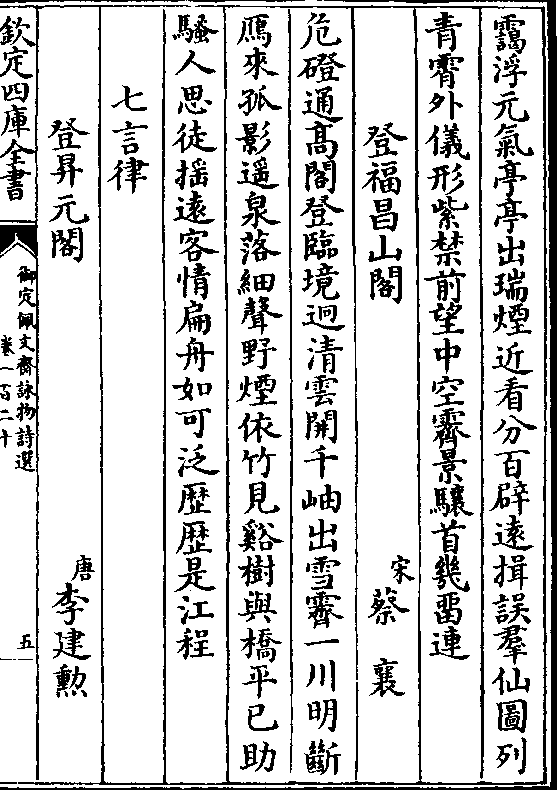 靄浮元氣亭亭出瑞煙近看分百辟遠揖誤羣仙圖列
青霄外儀形紫禁前望中空霽景驤首幾畱連
登福昌山閣 宋 蔡襄
危磴通髙閣登臨境迥清雲開千岫出雪霽一川明斷
鴈來孤影遥泉落細聲野煙依竹見谿樹與橋平已助
騷人思徒揺遠客情扁舟如可泛歴歴是江程
七言律
登昇元閣 唐 李建勲
欽定四庫全書
御定佩文齋詠物詩選
卷一百二十
五